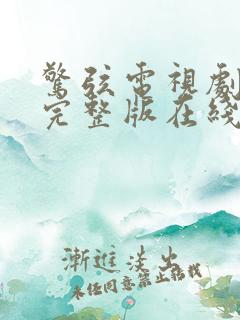 驚弦電視劇
完整版在綫
漸進淡出
未经同意禁止转载